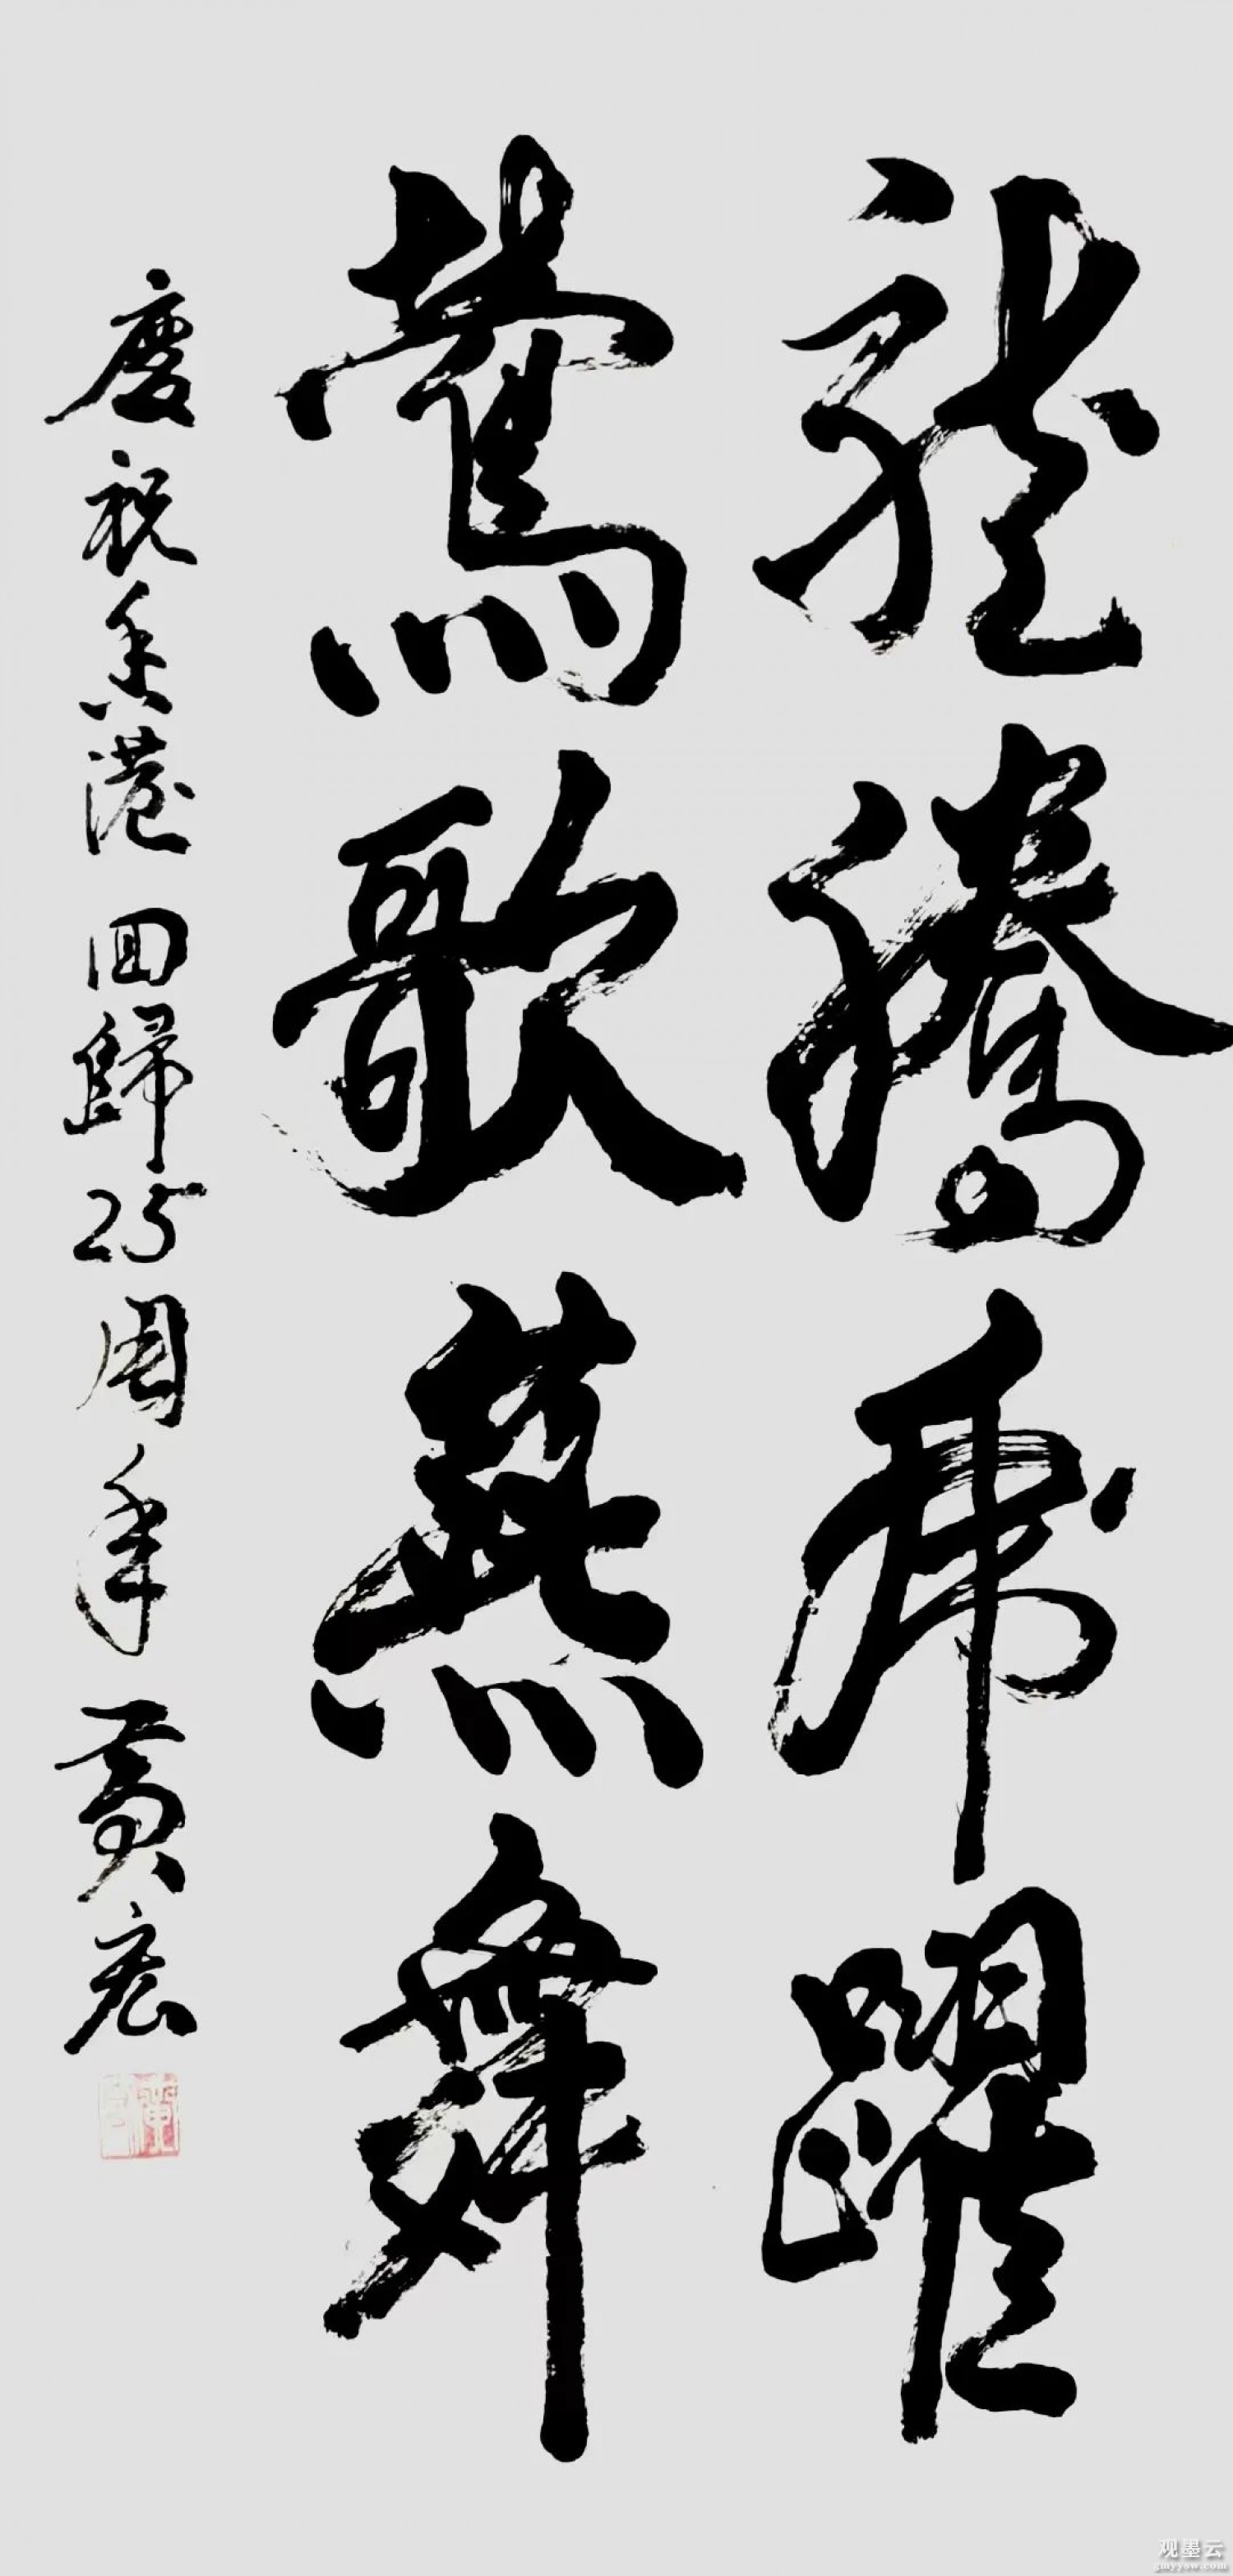 龍騰虎躍
鶯歌燕舞
慶祝香港回歸25周年 黄宏
观墨云
gmyysw.com